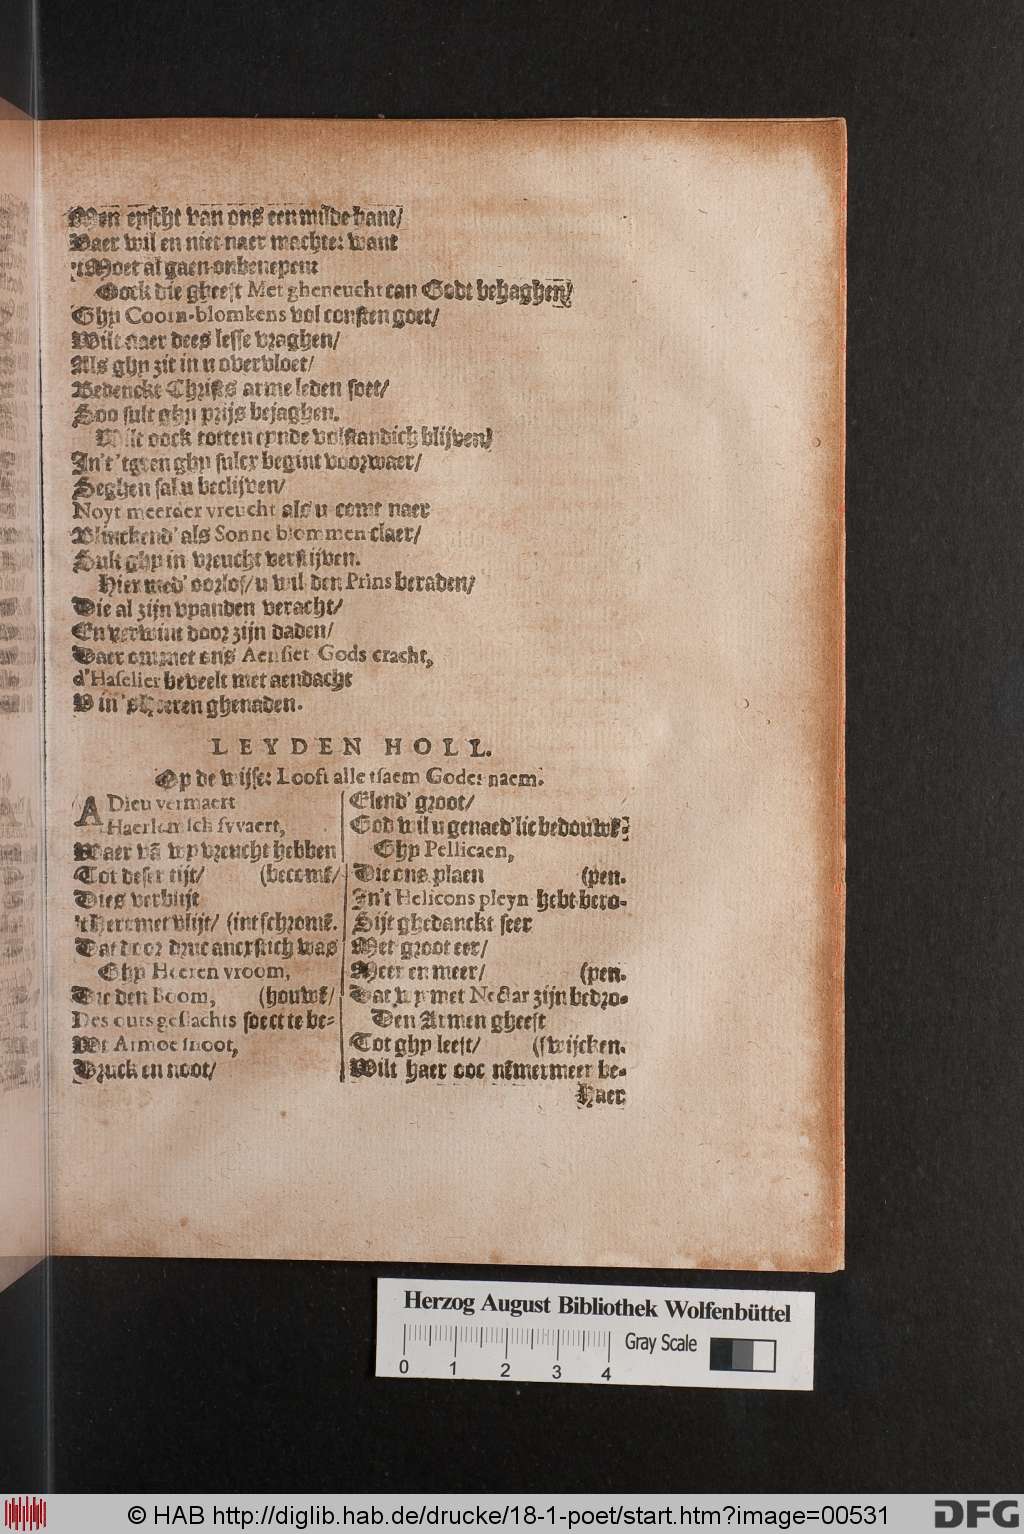 Men eyscht van ons een milde hant/
Daer wil en niet naer machte: want
'tMoet al gaen onbenepen:
Oock die gheest Met gheneucht can Godt behaghen/
Ghy Coorn-blomkens vol consten goet/
Wilt naer dees lesse vraghen/
Als ghy zit in u overvloet/
Bedenckt Christs arme leden soet/
Soo sult ghy prijs bejaghen.
Wilt oock totten eynde volstandich blijven/
In't 'tgeen ghy sulcx begint voorwaer/
Seghen sal u beclijven/
Noyt meerder vreucht als u comt naer
Blinckend' als Sonne blommen claer/
Sult ghy in vreucht verstijven.
Hier med' oorlof/ u wil den Prins beraden/
Die al zijn vyanden veracht/
En verwint door zijn daden/
Daer om met ons Aensiet Gods cracht,
d'Haselier beveelt met aendacht
V in 's Heeren ghenaden.
LEYDEN HOLL.
Op de wijse: Looft alle tsaem Godes naem.
ADieu vermaert
Haerlem sich swaert,
Waer vā wy vreucht hebben
Tot deser tijt/ (becomē/
Dies verblijt
't Hert met vlijt/ (int schromē.
Dat door druc ancxstich was
Ghy Heeren vroom,
Die den boom, (houwē/
Des outs geslachts soect te be-
Wt Armoe snoot,
Druck en noot/
Elend' groot/
God wil u genaed'lic bedouwē.
Ghy Pellicaen,
Die ons plaen (pen.
In't Helicons pleyn hebt bero-
Sijt ghedanckt seer
Met groot eer/
Meer en meer/ (pen.
Dat wy met Nectar zijn bedro-
Den Armen gheest
Tot ghy leest/ (swijcken.
Wilt haer ooc nēmermeer be-
Haer
Herzog August Bibliothek Wolfenbüttel
0 1 2 3 4
Gray Scale
© HAB http://diglib.hab.de/drucke/18-1-poet/start.htm?image=00531
DFG